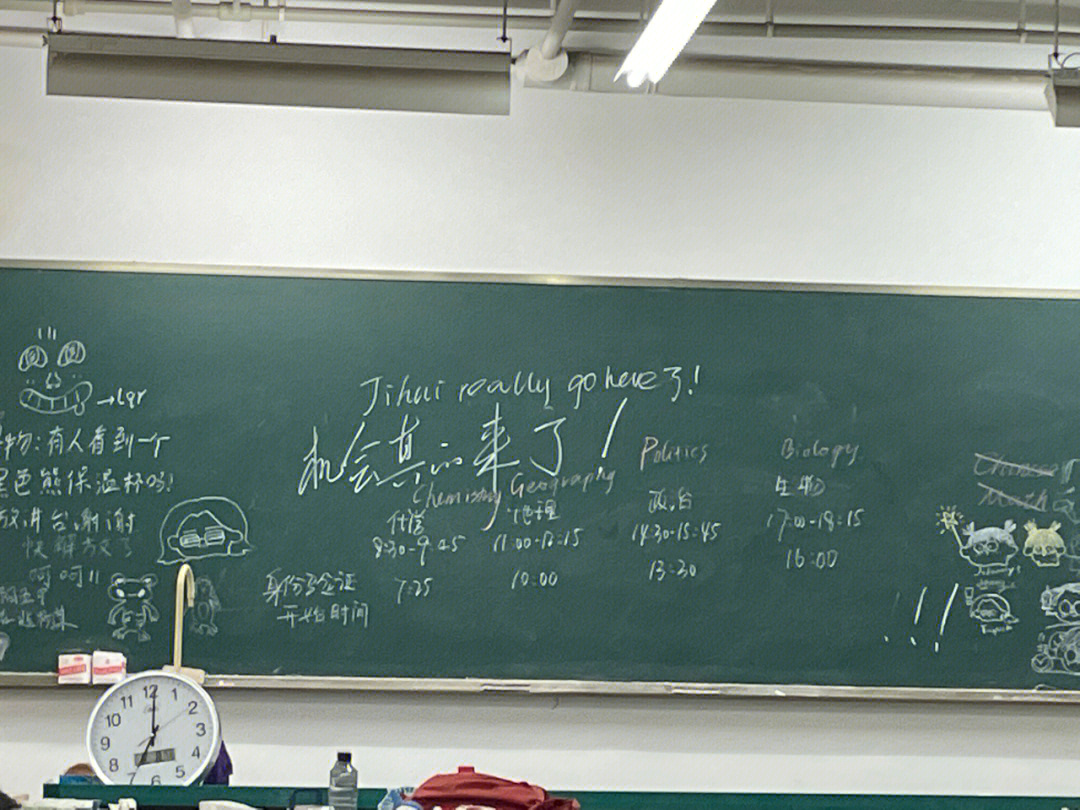 →lqr
物:有人看到一个
黑色熊保温杯吗!
放讲台,谢谢
呵呵!!
Jihui really go here了!
机会真的来了!
Chemistry Geography Politics Biology
化学 地理 政治 生物
8:30-9:45 11:00-12:15 14:30-15:45 17:00-18:15
身份验证
开始时间
7:25 10:00 13:30 16:00
Chinese
Math
!!!
11 12 1
10 2
9 3
8 4
7 6 5